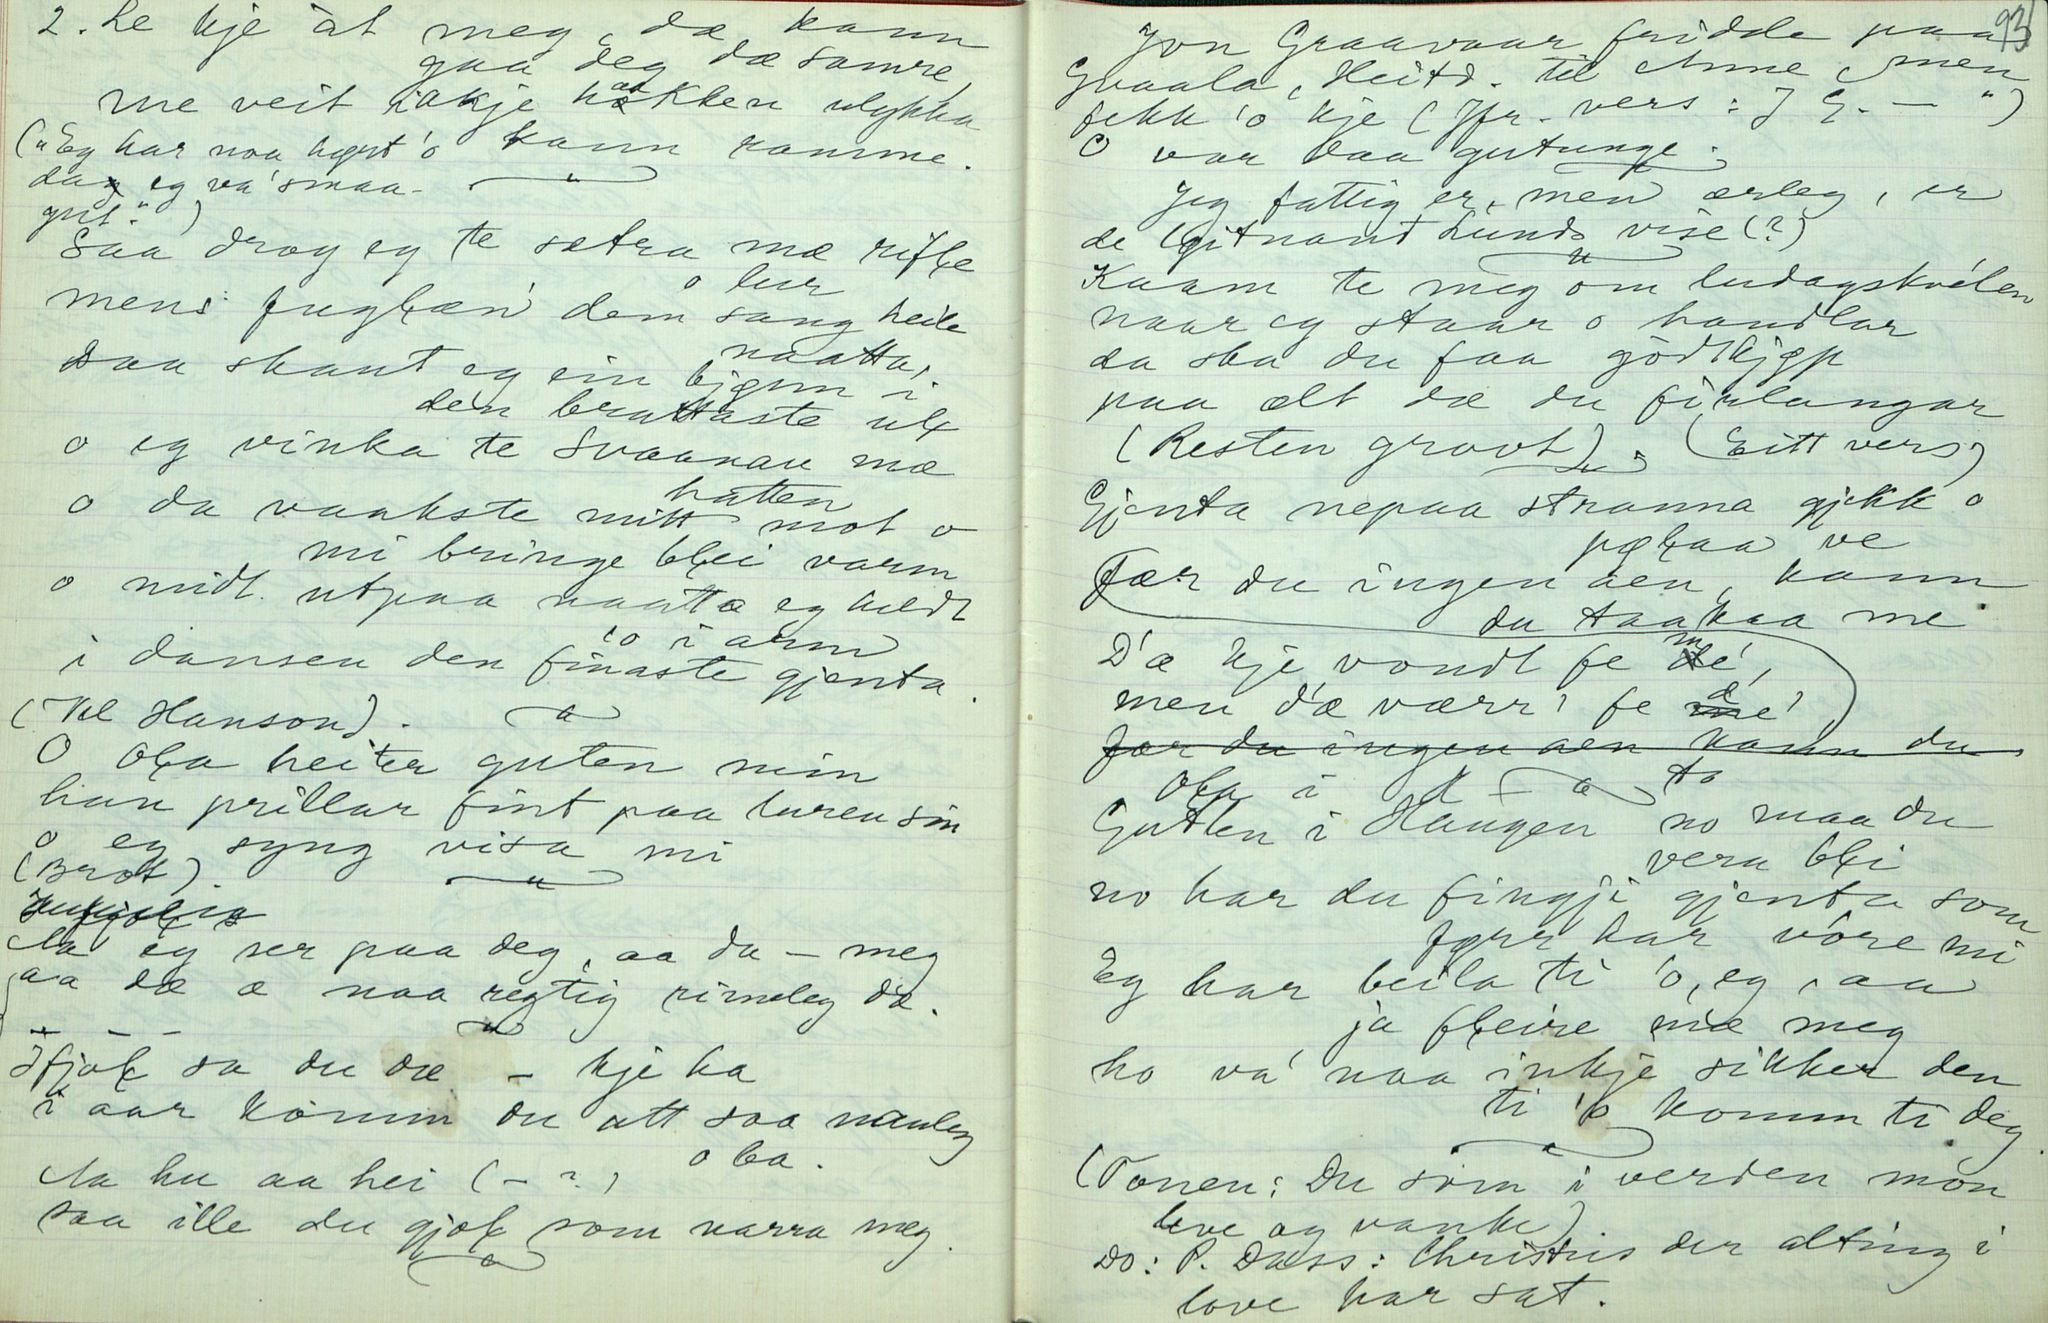 2. Le kje åt meg, dæ kann
gaa deg dæ samre,
me veit inkje håkken ulykka
kann ramme.
("Eg har noa høyrt 'o
dag eg va' smaa-
gut.")
Saa drog eg te sætra mæ rifle
o lur
mens fuglæn' dem sang heile
naatta,
Daa skaut eg ein bjønn i
den brattaste ul
o eg vinka te Svaanau mæ
hatten
o da vaakste mitt mot o
mi bringe blei varm
o midt utpaa naatta eg heldt
'o i arm
i dansen den finaste gjenta.
(Kl Hanson).
O Ola heiter guten min
han prillar fint paa luren sin
o eg syng visa mi
(Brot).
Aa eg ser paa deg, aa du – meg
aa dæ æ naa regtig rimeleg dæ.
– – –
Ifjol sa du dæ – kje ha
i aar kømm du att saa nauleg
o ba.
Aa hu aa hei ( – ? )
saa ille du gjol som narra meg.
93
Jon Graavaar fridde paa
Gvaala, Heitd. til Anne, men
fekk 'o kje (Jfr. vers: J G. — ")
O var daa gutunge.
Jeg fattig er, men ærleg, er
de løitnant Lunds vise (?)
Kaam te meg om ludagskvélen
naar eg staar o handlar
da ska du faa gödtkjøp
paa ælt dæ du fiklangar
(Resten grovt). (Eitt vers)
Gjenta nepaa stranna gjekk o
pølaa ve
Fær du ingen aen, kann
du taakaa me
D'æ kje vondt fe mé,
men d'æ værr' fe dé'
fær du ingen aen kann du
Ola i H – to
Guten i Haugen no maa du
vera bli
no har du fingji gjenta som
førr har vöre mi
Eg har beila ti 'o, eg, aa
ja fleire mæ meg
ho va' naa inkje sikker den
ti 'o komm ti deg.
(Tonen: Du som i verden mon
leve og vanke)
Do: P. Dass: Christus der alting i
love har sat.